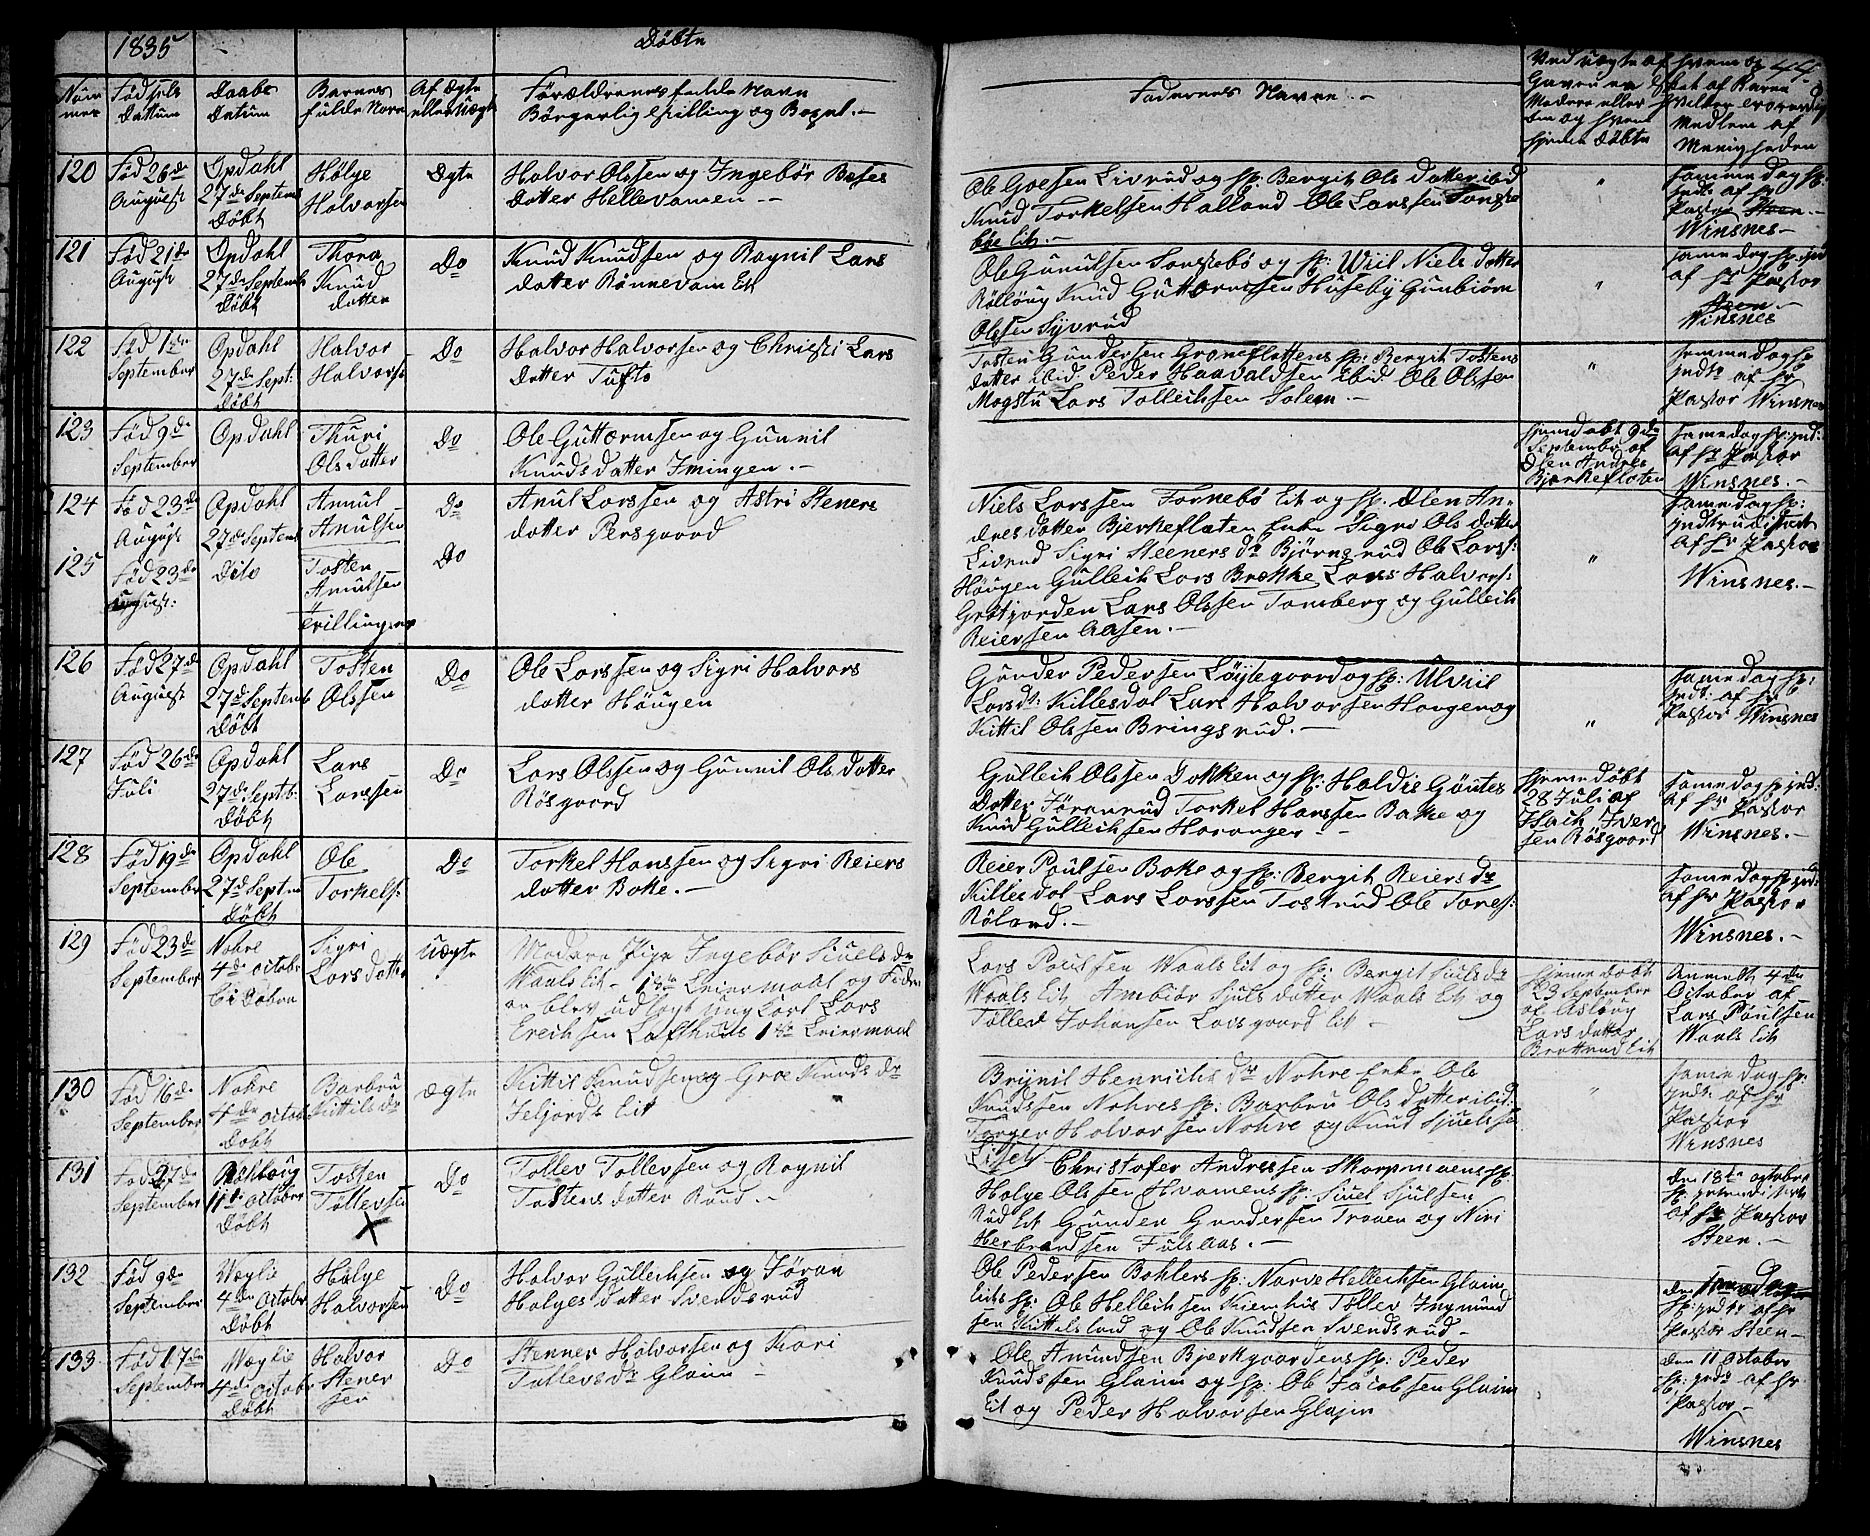 1835
Døbte
44.
Num-
mer
Fødsels
Dattum
Daabs
Datum
Barnets
fulde Navn
Af Ægte
eller Uægte
Forældrenes fulde Navn
Børgerlig Stilling og Bopæl.-
Faddernes Navne.-
Hjemme Døbte
Medlem af
Menigheden
120
Fød 26de
August
Opdahl
27de Septemb
Døbt
Hølge
Halvorsen
Ægte
Halvor Olssen og Ingebør
datter Hellevamen.-
Ole Livrud og sp: Bergit Ols datter ibid
Knud Torkelsen Halland Ole Larssen
bøe Eit.-
"
samme dag sp:
indt: af Hr
Pastor Steen.-
Winsnes.-
121
Fød 21de
August
Opdahl
27de Septemb
Døbt
Thora
Knud
datter
Do
Knud Knudsen og Ragnil Lars
datter Rønnevam Eit
Ole Gunulsen Sonstebø og sp: Wiil Niels datter
Knud Guttormsen Huseby Gunbiørn
Olssen Syvrud
"
same dag sp: ind
af Hr Pastor
Steen.-
Winsnes
122
Fød 1de
September
Opdahl
27de Sept:
Døbt
Halvor
Halvors:
Do
Halvor Halvorsen og Christi Lars
datter Tufto
Tosten Gundersen Groneflottens sp: Bergit Tostens
datter ibid Peder Haavaldsen ibid Ole Olssen
Mogstu Lars Tolleichsen Solem.-
"
samme dag sp:
indt: af Hr
Pastor Winsnes
123
Fød 9de
September
Opdahl
Thuri
Ols datter
Do
Ole Guttormsen og Gunnil
Knuds datter Imingen.-
Hjemdøbt 9de
September af
Elen Andres
Bjerkefloten
same dag sp: ind:
af Hr Pastor
Winsnes.-
124
Fød 23de
August
Opdahl
27de Septemb
Annul
Anulsen
Do
Anul Larssen og Astri Steners
datter Persgaard
Niels Larssen Tornebø Eit og sp: Elen An-
dres datter Bjerkefloten Enke Sigri Ols datter
Livrud Sigri Steeners dr Bjørnsrud Ole Larss:
Høugen Gulleik Lars Brekke Lars Halvors:
Grotjorden Lars Olssen Tonsberg og Gulleik
Reiersen Aasen.-
"
samme dag sp:
af Hr Pastor
Winsnes.-
125
Fød 23de
August:
Dito
Tosten
Anulsen
Tvillinger
Do
126
Fød 27de
August
Opdahl
27de Septemb
Døbt
Tosten
Olssen
Do
Ole Larssen og Sigri Halvors
datter Høugen
Gunder Pedersen Løytegaard og sp: Ulviil
Lars dr: Killesdal Lars Halvorsen Hougen og
Kittil Olssen Bringsrud.-
"
same dag sp:
indt: af Hr
Pastor Winsnes
127
Fød 26de
Juli
Opdahl
27de Septb:
Døbt
Lars
Larssen
Do
Lars Olssen og Gunnil Ols datter
Røsgaard
Gulleik Olssen Jokken og sp: Haldis Goutes
datter Jøranrud Torkel Hanssen Bakke og
Knud Gulleichsen Horanger.-
Hjeme Døbt
28 Juli af
Iver
sen Røsgaard
same dag sp: ind:
af Hr Pastor
Winsnes.-
128
Fød 19de
September
Opdahl
27de Septem
Døbt
Ole
Torkels:
Do
Torkel Hanssen og Sigri Reiers
datter Bake.-
Reier Poulsen Bake og sp: Bergit Reiers dr
Killesdal Lars Larssen Tostrud Ole Tores:
Røland.-
samme dag sp: ind:
af Hr Pastor
Winsnes.-
129
Fød 23de
September
Nohre
4de Octobr
Sigri
Lars datter
Uægte
Moderen Pige Ingebør Siuels dr
Waals Eit - 1ste Leiermaal og Fader
en blev udlagt ung Karl Lars
Erichsen Lofthuus 1ste Leiermaal
Lars Poulssen Waals Eit og sp: Bergit Siuls dr
Waals Eit Ambiør Sjuls datter Waals Eit og
Tollev Johansen Larsgaard Eit.-
Hjeme Døbt
23 September
af Aslaug
Lars datter
Brottrud Eit
Anmelt 4de
October af
Lars Poulsen
Waals Eit
130
Fød 16de
September
Nohre
4de Octob
Døbt
Barbru
Kittils dr
Ægte
Kittil Knudsen og Groe Knuds dr
Feljords Eit
Brynil Henrichs dr Nohre Enke Ole
Knudssen Nohres sp: Barbru Ols datter ibid:
Torger Halvorsen Nohre og Knud Sjuelsse
Liset
"
samme dag sp:
indt: af Hr
Pastor
Winsnes
131
Fød 27de
September
Rolloug
11de October
Døbt
Tosten
Tollevsen
Do
Tollev Tollevsen og Ragnil
Tostens datter Ruud.-
Christofer Andressen Skarpmoens sp:
Helge Olssen Hvamens sp: Siuel Sjulsen
Rud Eit Gunder Gundersen Traaen og Niri
Herbrandsen Fulsaas.-
den 18de October
af Hr Pastor
Steen.-
132
Fød 9de
September
Weglie
4de October
Døbt
Hølge
Halvorsen
Do
Halvor Gulleichsen og Jøran
Holges datter Svendsrud
Ole Pedersen Bohlers sp: Narve Helleichsen Glaim
Eits sp: Ole Helleichsen Kiemhus Tollev Ingmund
sen Kittilsland og Ole Knudsen Svendsrud.-
sp: indt: af Hr
Pastor Steen-
133
Fød 17de
September
Weglie
4de October
Døbt
Halvor
Stener
sen
Do
Stenner Halvorsen og Kari
Tollevs dr Glaim -
Ole Amundsen Bjerkgaardens sp: Peder
Knudssen Glaim og sp: Ole Jacobsen Glaim
Eit og Peder Halvorsen Glaim
den 11 October
sp: indt: af Hr
Pastor-
Winsnes